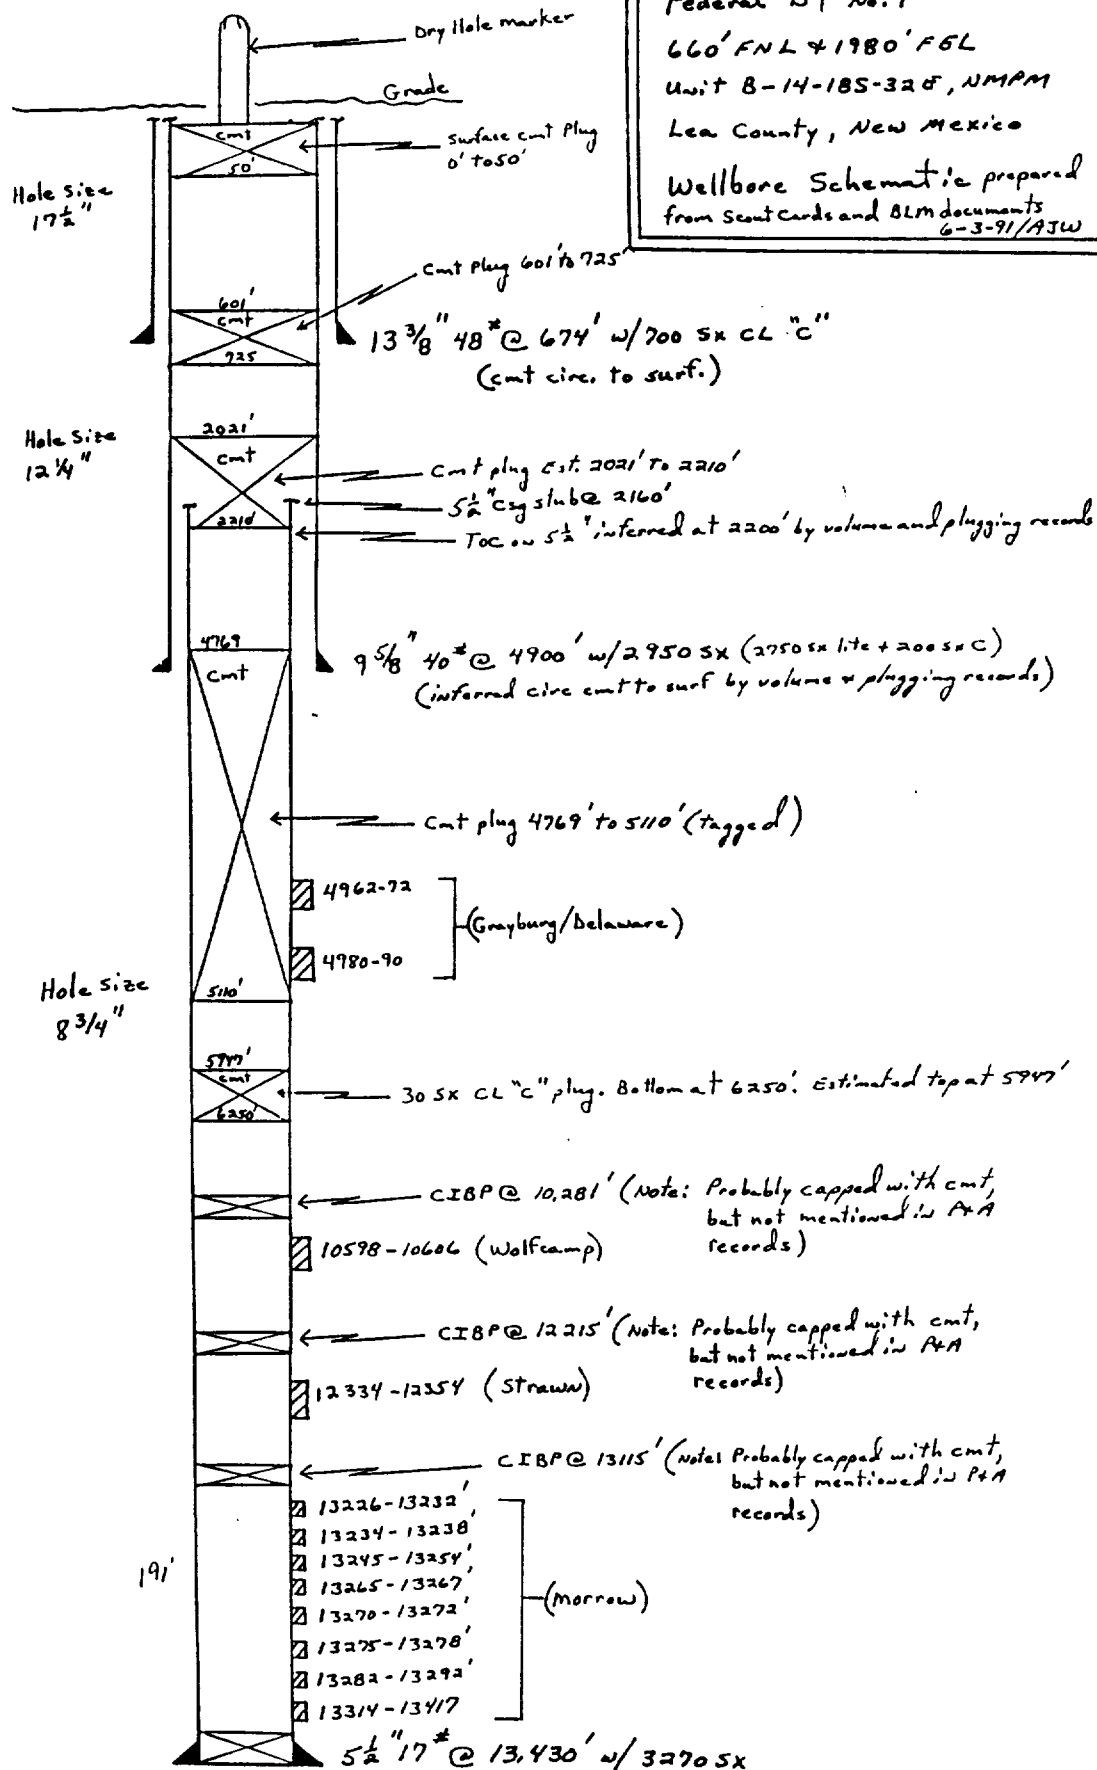 Dry Hole marker
Grade
Federal
No. 1
660' FNL & 1980' FEL
Unit B-14-18S-32E, NMPM
Lea County, New Mexico
Wellbore Schematic prepared
from Scout Cards and BLM documents
6-3-91/AJW
cmt
50'
Surface cmt Plug
0' to 50'
Hole Size
17 1/2"
Cmt Plug 601' to 725'
601'
cmt
725
13 3/8" 48# @ 674' w/700 sx CL "C"
(cmt circ. to surf.)
Hole Size
12 1/4"
2021'
cmt
2210'
Cmt plug Est. 2021' to 2210'
5 1/2" csg stub @ 2160'
TOC on 5 1/2" inferred at 2200' by volume and plugging records
4769
cmt
9 5/8" 40# @ 4900' w/2950 sx (2750 sx lite + 200 sx C)
(inferred circ cmt to surf by volume & plugging records)
Cmt plug 4769' to 5110' (tagged)
4962-72
(Grayburg/Delaware)
4980-90
Hole Size
8 3/4"
5110'
5947'
cmt
6250'
30 SX CL "C" plug. Bottom at 6250'. Estimated top at 5947'
CIBP @ 10,281' (Note: Probably capped with cmt,
but not mentioned in P+A
records)
10598-10606 (Wolfcamp)
CIBP @ 12215' (Note: Probably capped with cmt,
but not mentioned in P+A
records)
12334-12354 (Strawn)
CIBP @ 13115' (Note: Probably capped with cmt,
but not mentioned in P+A
records)
13226-13232'
13234-13238'
13245-13254'
13265-13267'
191'
(Morrow)
13270-13272'
13275-13278'
13282-13292'
13314-13417
5 1/2" 17# @ 13,430' w/ 3270 sx